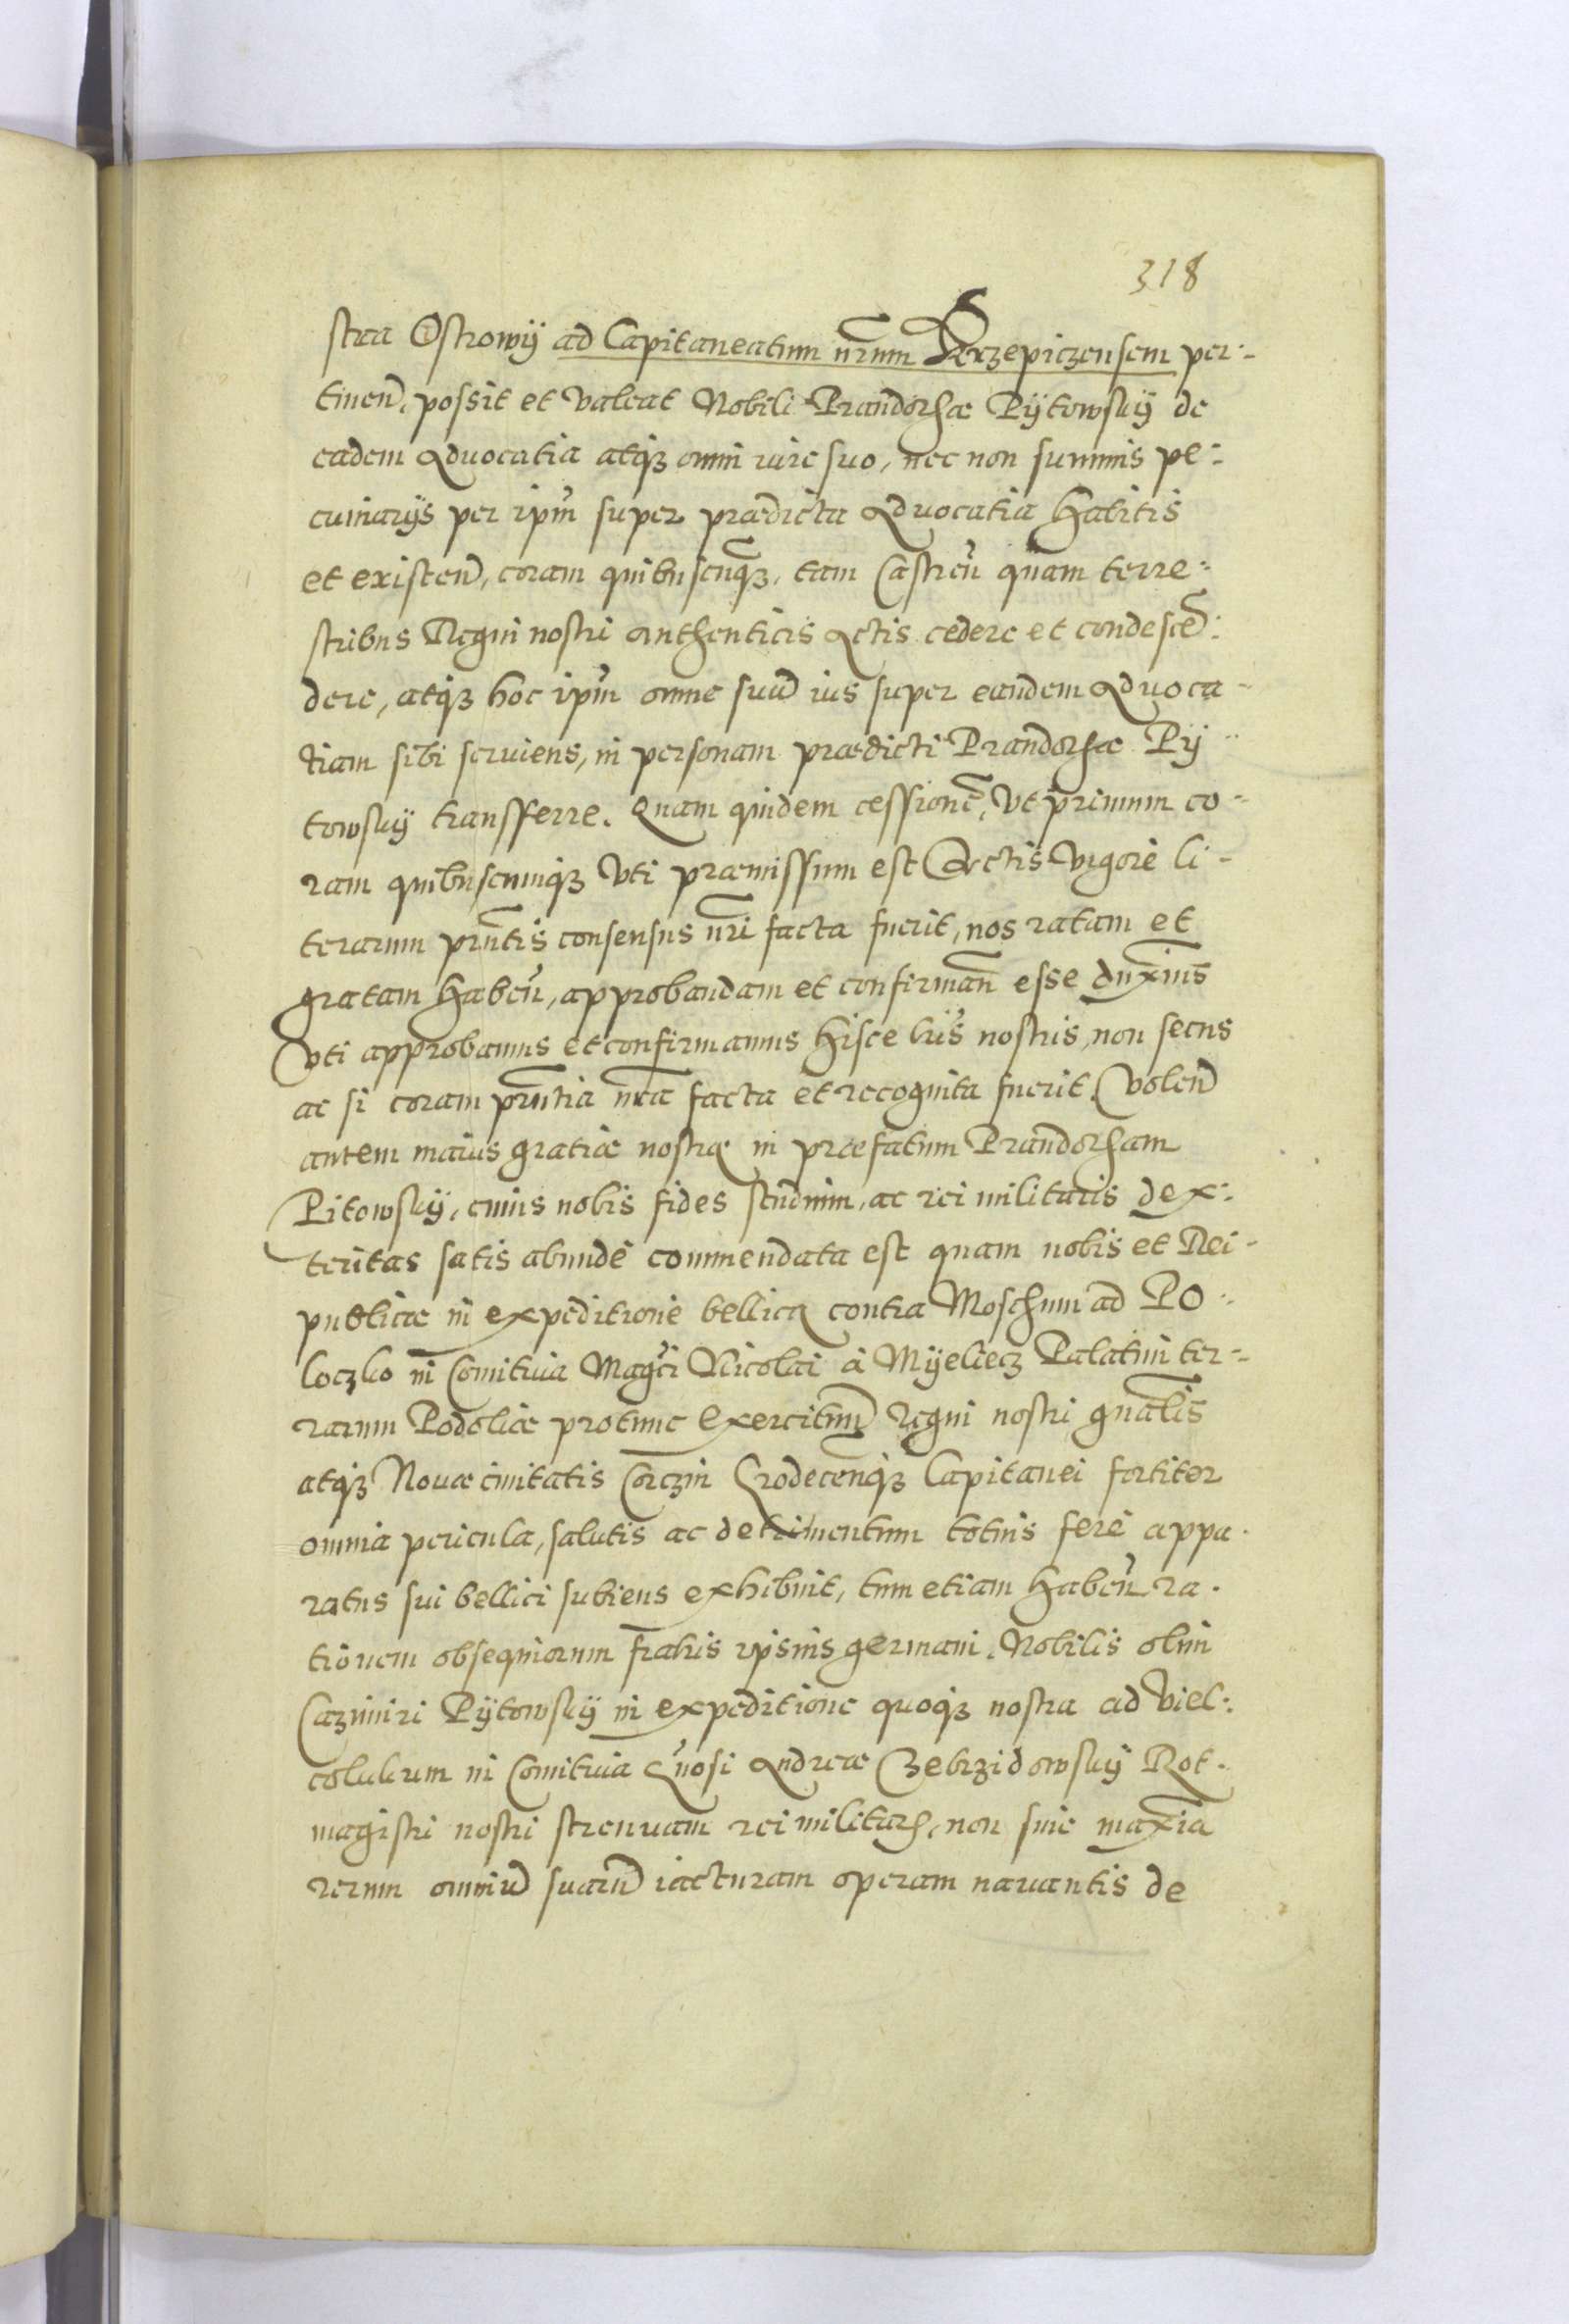 318
stra Ostrowÿ ad Capitaneatum nr̃um Krzepiczensem per:-
tinen̄. possit et valeat Nobili Prandothæ Pÿtowskÿ de
eadem Aduocatia atqʒ omni iure suo, nec non summis pe:
cuniarÿs per ipm̄ super prædicta Aduocatia habitis
et existen̄, coram quibuscunqʒ, tam Castren̄ quam terre:
stribus Regni nostri authenticis Actis cedere et condescē:
dere, atqʒ hoc ipm̄ omne suū ius super eandem Aduoca-
tiam sibi seruiens, in personam prædicti Prandothæ Pÿ-
towskÿ transferre. Quam quidem cessionē, vt primum co-
ram quibuscunqʒ vti præmissum est Actis vigore li-
terarum pñtis consensus nr̃i facta fuerit, nos ratam et
gratam haben̄, approbandam et confirman̄ esse duximus
vti approbamus et confirmamus hisce lr̃is nostris, non secus
ac si coram pñtia nr̃a facta et recognita fuerit. Volen̄
autem maius gratiæ nostræ in præfatum Prandotham
Pitowskÿ, cuius nobis fides studium, ac rei militaris dex:
teritas satis abundè commendata est quam nobis et Rei-
publicæ in expeditione bellica contra Moschum ad Po-
loczko in Comitiua Magci Nicolai à Mÿelecz Palatini ter:-
rarum Podoliæ protunc Exercituum Regni nostri gnãlis
atqʒ Nouæ ciuitatis Corczin Grodecenqʒ Capitanei fortiter
omnia pericula, salutis ac detrimentum totius ferè appa-
ratus sui bellici subiens exhibuit, tum etiam haben̄ ra-
tionem obsequiorum fratris ipsius germani, Nobilis olim
Cazimiri Pÿtowskÿ in expeditione quoqʒ nostra ad Viel:
colukum in Comitiua Gn̄osi Andreæ Zebrzidowskÿ Rot-
magistri nostri strenuam rei militaris, non sine maxĩa
rerum omniū suarū iacturam operam nauantis de